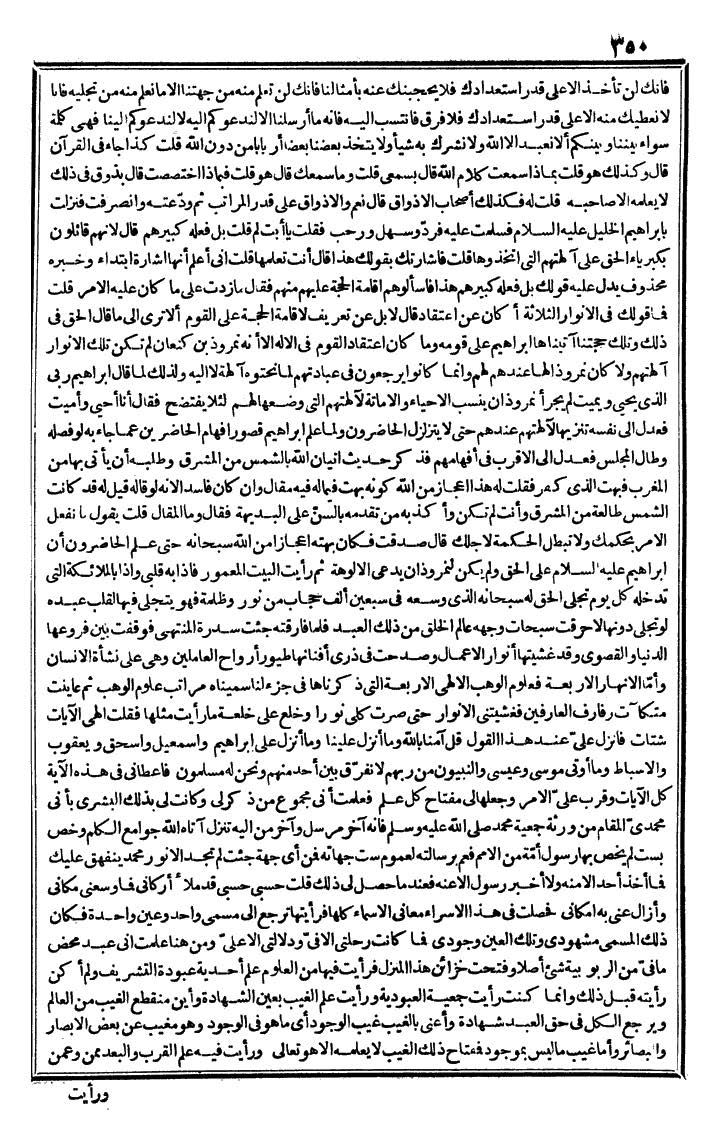 ٣٥٠
فانك لن تأخذ الاعلى قدر استعدادك فلا يحجبنك عنه بأمثالنا فانك لن تعلم منه من جهتنا الا ما نعلم منه من تجليه فانا
لا نعطيك منه الا على قدر استعدادك فلا فرق فانتسب اليه فانه ما أرسلنا الا لندعوكم اليه لا لندعوكم الينا فهى كلمة
سواء بيننا وبينكم ألا نعبد الا الله ولا نشرك به شيأ ولا يتخذ بعضنا بعضا أربابا من دون الله قلت كذا جاء فى القرآن
قال وكذلك هو قلت بماذا سمعت كلام الله قال بسمعى قلت وما سمعك قال هو قلت فبماذا اختصصت قال بذوق فى ذلك
لا يعلمه الا صاحبه قلت له فكذلك أصحاب الاذواق قال نعم والاذواق على قدر المراتب ثم ودّعته وانصرفت فنزلت
بابراهيم الخليل عليه السلام فسلمت عليه فردّ وسهل ورحب فقلت يا أبت لم قلت بل فعله كبيرهم قال لانهم قائلون
بكبرياء الحق على آلهتهم التى اتخذوها قلت فاشارتك بقولك هذا قال أنت تعلمها قلت انى أعلم أنها اشارة ابتداء وخبره
محذوف يدل عليه قولك بل فعله كبيرهم هذا فاسألوهم اقامة الحجة عليهم منهم فقال ما زدت على ما كان عليه الامر قلت
فما قولك فى الانوار الثلاثة أكان عن اعتقاد قال لا بل عن تعريف لاقامة الحجة على القوم ألا ترى الى ما قال الحق فى
ذلك وتلك حجتنا آتيناها ابراهيم على قومه وما كان اعتقاد القوم فى الاله الا أنه نمروذ بن كنعان لم تكن تلك الانوار
آلهتهم ولا كان نمروذ الها عندهم لهم وانما كانوا يرجعون فى عبادتهم لما نحتوه آلهة لا اليه ولذلك لما قال ابراهيم ربى
الذى يحيى ويميت لم يجرأ نمروذ ان ينسب الاحياء والاماتة لآلهتهم التى وضعها لهم لئلا يفتضح فقال أنا أحيى وأميت
فعدل الى نفسه تنزيها لآلهتهم عندهم حتى لا يتزلزل الحاضرون ولما علم ابراهيم قصور افهام الحاضرين عما جاء به لو فصله
وطال المجلس فعدل الى الاقرب فى أفهامهم فذكر حديث اتيان الله بالشمس من المشرق وطلبه أن يأتى بها من
المغرب فبهت الذى كفر فقلت له هذا اعجاز من الله كونه بهت فيما له فيه مقال وان كان فاسد الانه لو قاله قيل له قد كانت
الشمس طالعة من المشرق وأنت لم تكن وأكذبه من تقدمه بالسنّ على البديهة فقال وما المقال قلت يقول ما نفعل
الامر بحكمك ولا تبطل الحكمة لاجلك قال صدقت فكان بهته اعجازا من الله سبحانه حتى علم الحاضرون أن
ابراهيم عليه السلام على الحق ولم يكن لنمروذ ان يدعى الالوهة ثم رأيت البيت المعمور فاذا به قلبى واذا بالملائكة التى
تدخله كل يوم تجلى الحق له سبحانه الذى وسعه فى سبعين ألف حجاب من نور وظلمة فهو يتجلى فيها لقلب عبده
لو تجلى دونها لاحرقت سبحات وجهه عالم الخلق من ذلك العبد فلما فارقته جئت سدرة المنتهى فوقفت بين فروعها
الدنيا والقصوى وقد غشيتها أنوار الاعمال وصدحت فى ذرى أفنانها طيور أرواح العاملين وهى على نشأة الانسان
وأمّا الانهار الاربعة فعلوم الوهب الالهى الاربعة التى ذكرناها فى جزء لنا سميناه مراتب علوم الوهب ثم عاينت
متكآت رفارف العارفين فغشيتنى الانوار حتى صرت كلى نورا وخلع على خلعة ما رأيت مثلها فقلت الهى الآيات
شتات فانزل علىّ عند هذا القول قل آمنا بالله وما أنزل علينا وما أنزل على ابراهيم واسمعيل واسحق ويعقوب
والاسباط وما أوتى موسى وعيسى والنبيون من ربهم لا نفرّق بين أحد منهم ونحن له مسلمون فاعطانى فى هذه الآية
كل الآيات وقرب علىّ الامر وجعلها لى مفتاح كل علم فعلمت أنى مجموع من ذكر لى وكانت لى بذلك البشرى بأنى
محمدىّ المقام من ورثة جمعية محمد صلى الله عليه وسلم فانه آخر مرسل وآخر من اليه تنزل آتاه الله جوامع الكلم وخص
بست لم يخص بها رسول أمّة من الامم فعم برسالته لعموم ست جهاته فن أى جهة جئت لم تجد الا نور محمد ينفهق عليك
فما أخذ أحد الا منه ولا أخبر رسول الا عنه فعند ما حصل لى ذلك قلت حسبى حسبى قد ملأ أركانى فما وسعنى مكانى
وأزال عنى به امكانى فحصلت فى هذا الاسراء معانى الاسماء كلها فرأيتها ترجع الى مسمى واحد وعين واحدة فكان
ذلك المسمى مشهودى وتلك العين وجودى فما كانت رحلتى الا فىّ ودلالتى الا علىّ ومن هنا علمت انى عبد محض
ما فىّ من الربوبية شئ أصلا وفتحت خزائن هذا المنزل فرأيت فيها من العلوم علم أحدية عبودة التشريف ولم أكن
رأيته قبل ذلك وانما كنت رأيت جمعية العبودية ورأيت علم الغيب بعين الشهادة وأين منقطع الغيب من العالم
ويرجع الكل فى حق العبد شهادة وأعنى بالغيب غيب الوجود أى ما هو فى الوجود وهو مغيب عن بعض الابصار
والبصائر وأما غيب ما ليس بموجود فمفتاح ذلك الغيب لا يعلمه الا هو تعالى ورأيت فيه علم القرب والبعد ممن وعمن
ورأيت